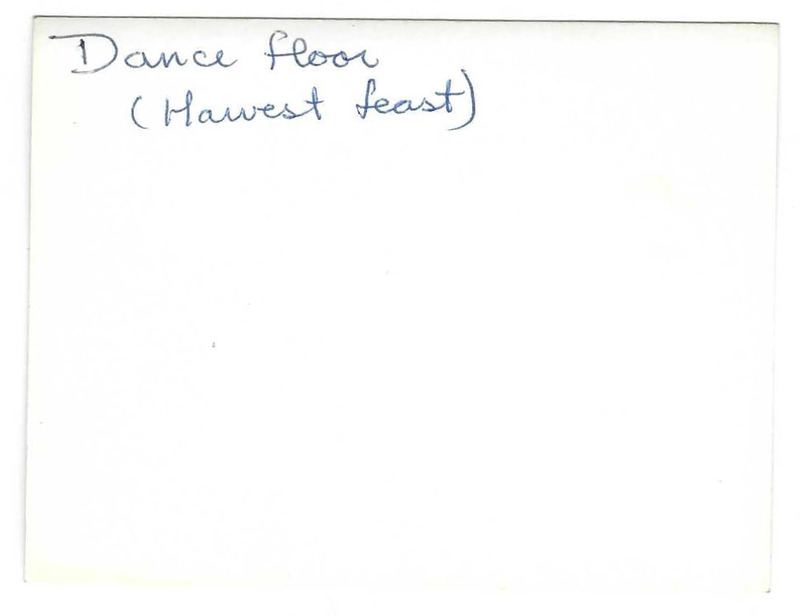 Dance floor
(Harvest feast)